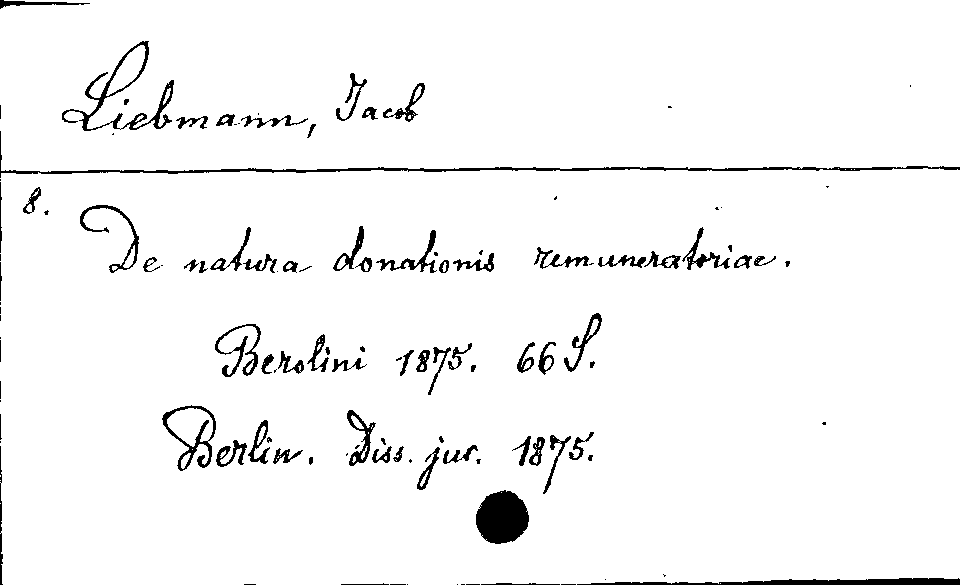 Liebmann, Jacob
8.
De natura donationis remuneratoriae.
Berolini 1875. 66 S.
Berlin. Diss. jur. 1875.